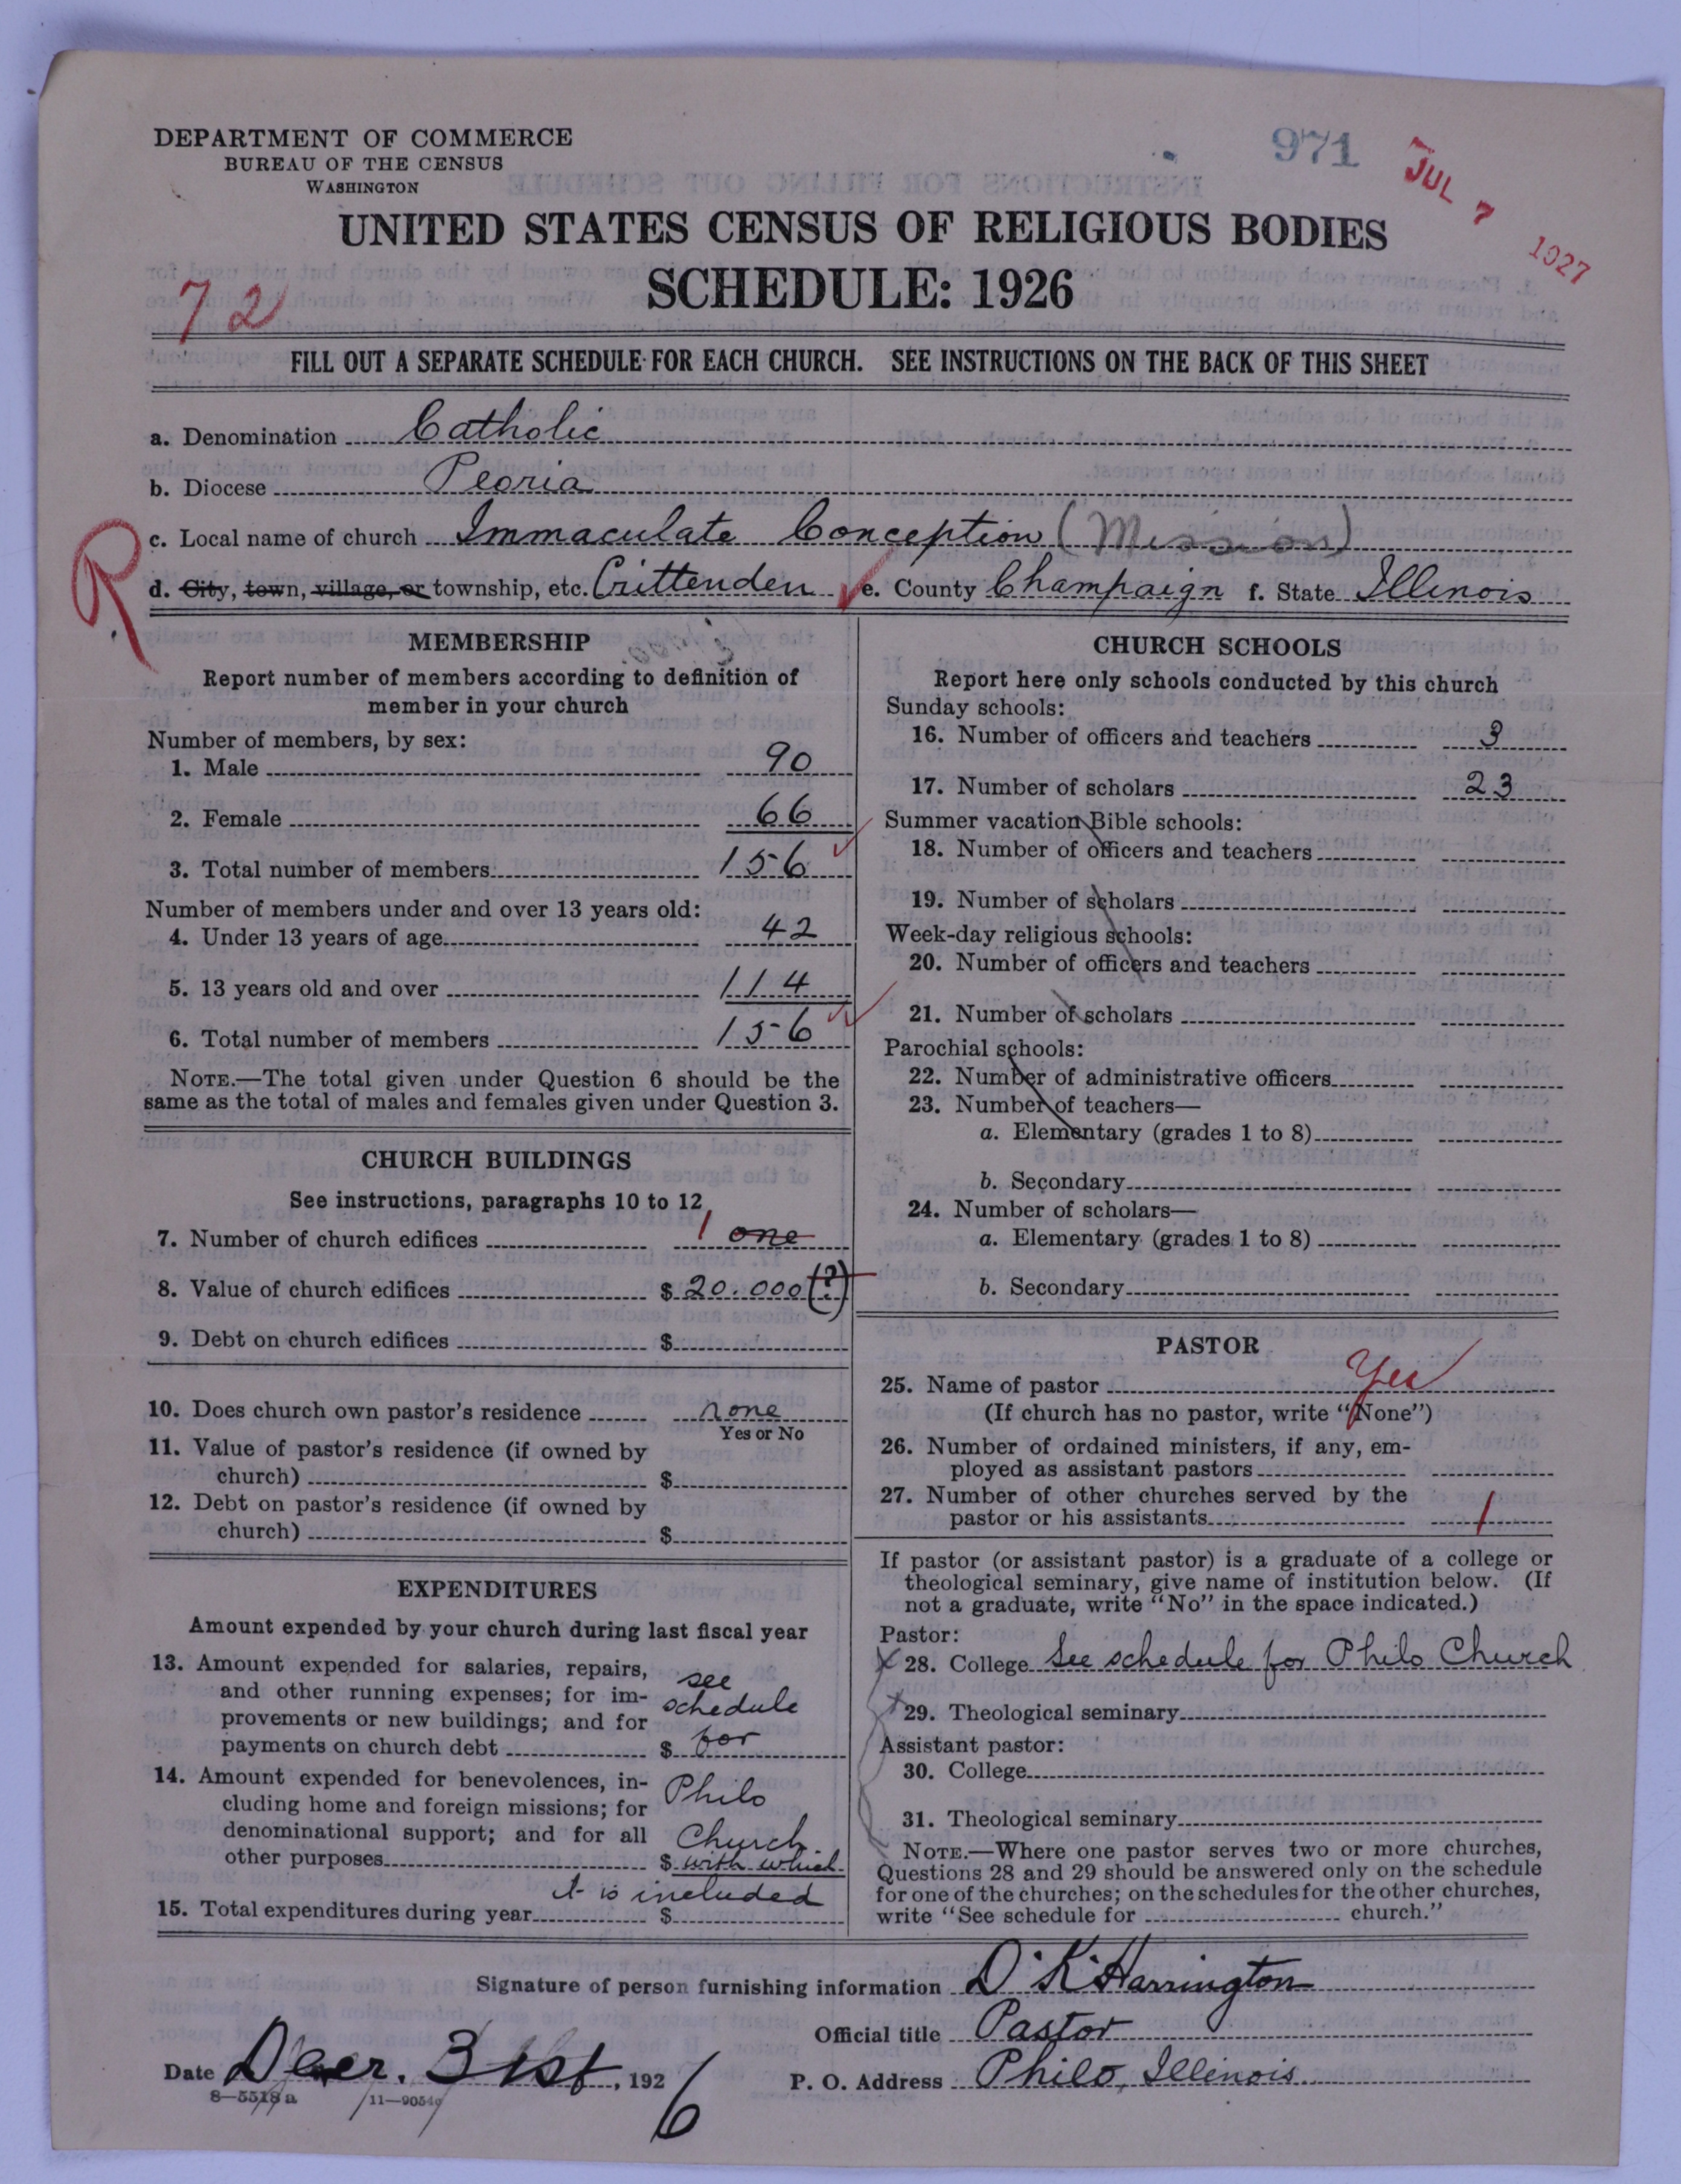 DEPARTMENT OF COMMERCE
BUREAU OF THE CENSUS
WASHINGTON
971
JUL 7 1927
UNITED STATES CENSUS OF RELIGIOUS BODIES
SCHEDULE: 1926
72
FILL OUT A SEPARATE SCHEDULE FOR EACH CHURCH. SEE INSTRUCTIONS ON THE BACK OF THIS SHEET
a. Denomination Catholic
b. Diocese Peoria
c. Local name of church Immaculate Conception (Mission)
R
d. City, town, village, or township, etc. Crittenden e. County Champaign f. State Illinois
MEMBERSHIP
Report number of members according to definition of
member in your church
Number of members, by sex:
1. Male 90
2. Female 66
3. Total number of members 156
Number of members under and over 13 years old:
4. Under 13 years of age 42
5. 13 years old and over 114
6. Total number of members 156
NOTE.—The total given under Question 6 should be the
same as the total of males and females given under Question 3.
CHURCH BUILDINGS
See instructions, paragraphs 10 to 12
7. Number of church edifices 1 one
8. Value of church edifices $ 20.000 (?)
9. Debt on church edifices $
10. Does church own pastor's residence none
Yes or No
11. Value of pastor's residence (if owned by
church) $
12. Debt on pastor's residence (if owned by
church) $
EXPENDITURES
Amount expended by your church during last fiscal year
13. Amount expended for salaries, repairs, see
and other running expenses; for im- schedule
provements or new buildings; and for
payments on church debt $ for
14. Amount expended for benevolences, in- Philo
cluding home and foreign missions; for
denominational support; and for all Church
other purposes $ with which
it is included
15. Total expenditures during year $
CHURCH SCHOOLS
Report here only schools conducted by this church
Sunday schools:
16. Number of officers and teachers 3
17. Number of scholars 23
Summer vacation Bible schools:
18. Number of officers and teachers
19. Number of scholars
Week-day religious schools:
20. Number of officers and teachers
21. Number of scholars
Parochial schools:
22. Number of administrative officers
23. Number of teachers—
a. Elementary (grades 1 to 8)
b. Secondary
24. Number of scholars—
a. Elementary (grades 1 to 8)
b. Secondary
PASTOR
25. Name of pastor Yes
(If church has no pastor, write "None")
26. Number of ordained ministers, if any, em-
ployed as assistant pastors
27. Number of other churches served by the
pastor or his assistants 1
If pastor (or assistant pastor) is a graduate of a college or
theological seminary, give name of institution below. (If
not a graduate, write "No" in the space indicated.)
Pastor:
28. College See schedule for Philo Church
29. Theological seminary
Assistant pastor:
30. College
31. Theological seminary
NOTE.—Where one pastor serves two or more churches,
Questions 28 and 29 should be answered only on the schedule
for one of the churches; on the schedules for the other churches,
write "See schedule for church."
Signature of person furnishing information D. K. Harrington
Official title Pastor
Date Decr. 31st, 1926
P. O. Address Philo, Illinois
8—5518a 11—9054